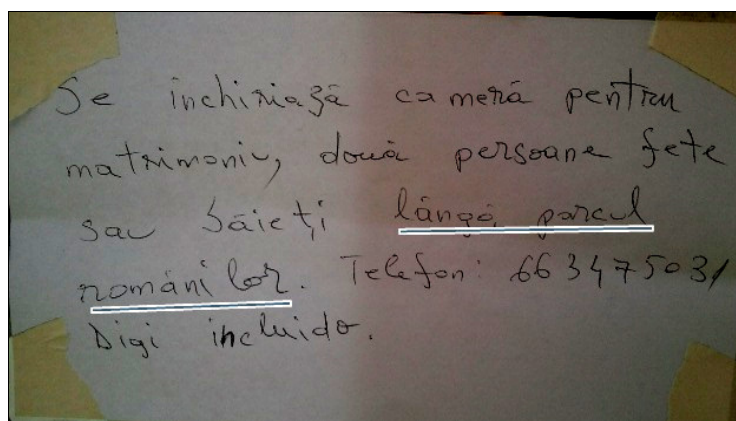 Se închiriază cameră pentru
matrimoniu, două persoane fete
sau băieți lângă parcul
românilor. Telefon: 663475031
Digi incluido.